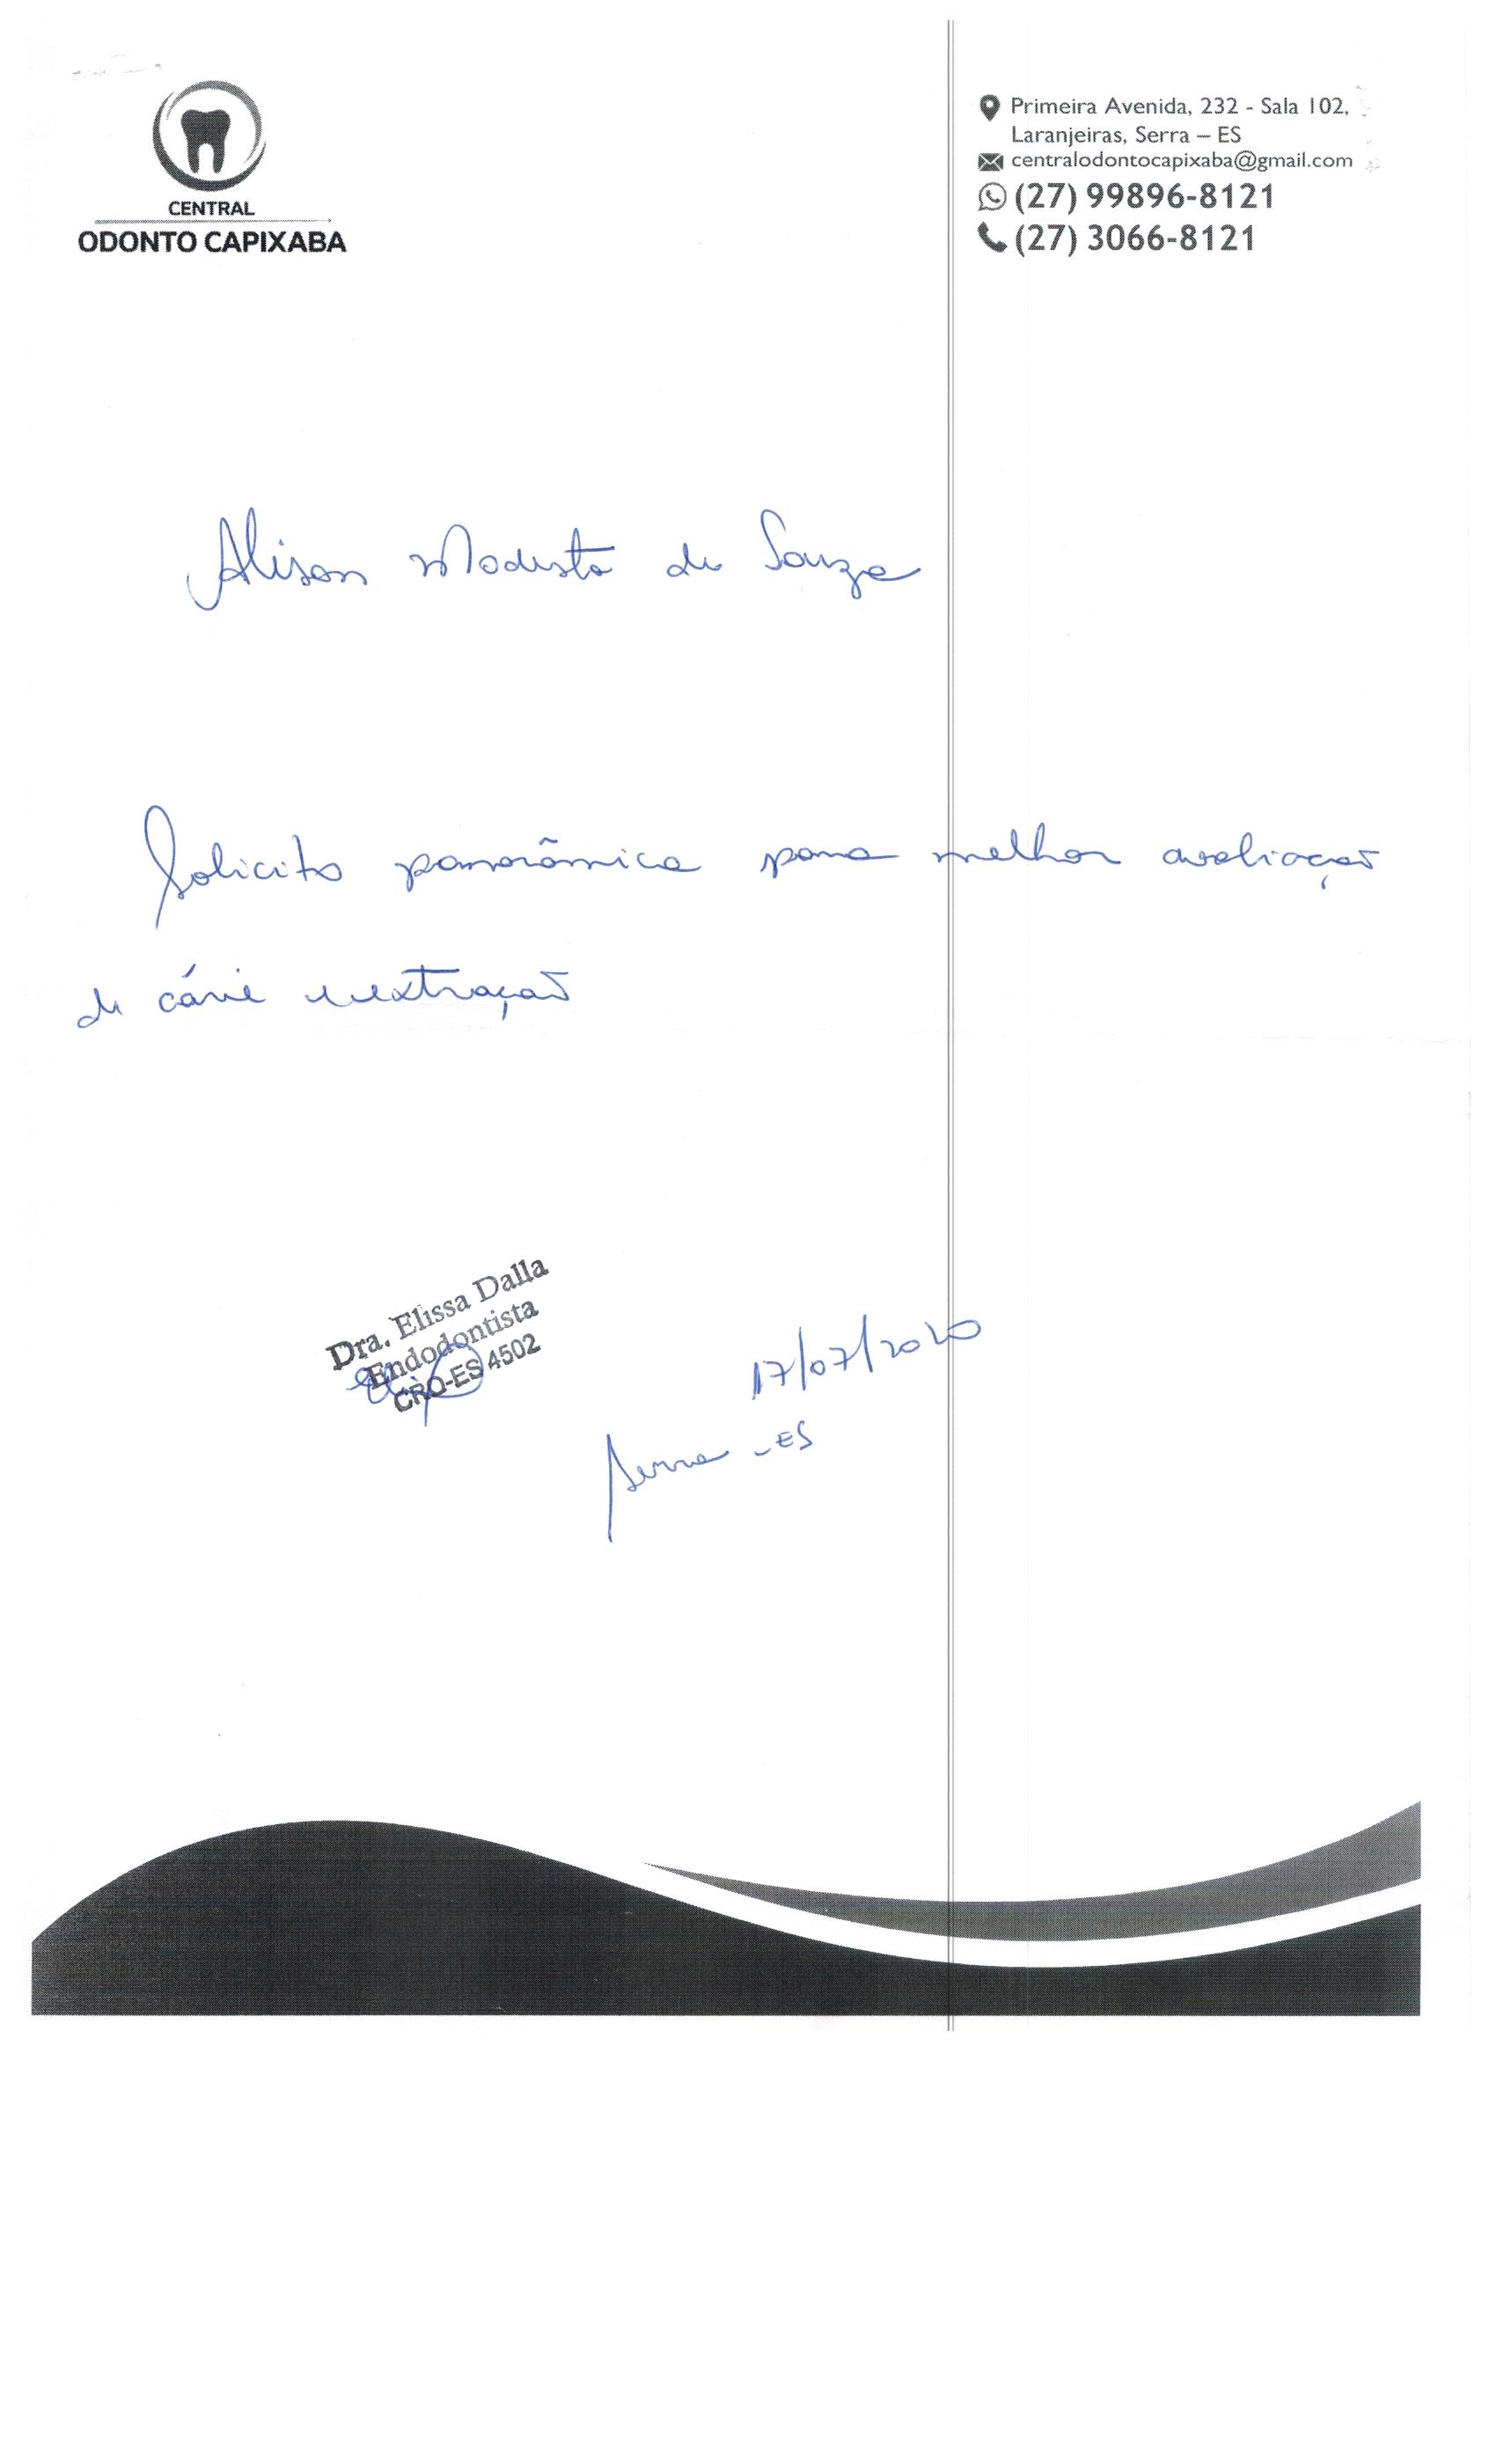 CENTRAL
ODONTO CAPIXABA
Primeira Avenida, 232 - Sala 102,
Laranjeiras, Serra – ES
centralodontocapixaba@gmail.com
(27) 99896-8121
(27) 3066-8121
Alison Modesto de Souza
Solicito panorâmica para melhor avaliação
de cárie e extração
Dra. Elissa Dalla
Endodontista
CRO-ES 4502
17/07/2020
Serra - ES